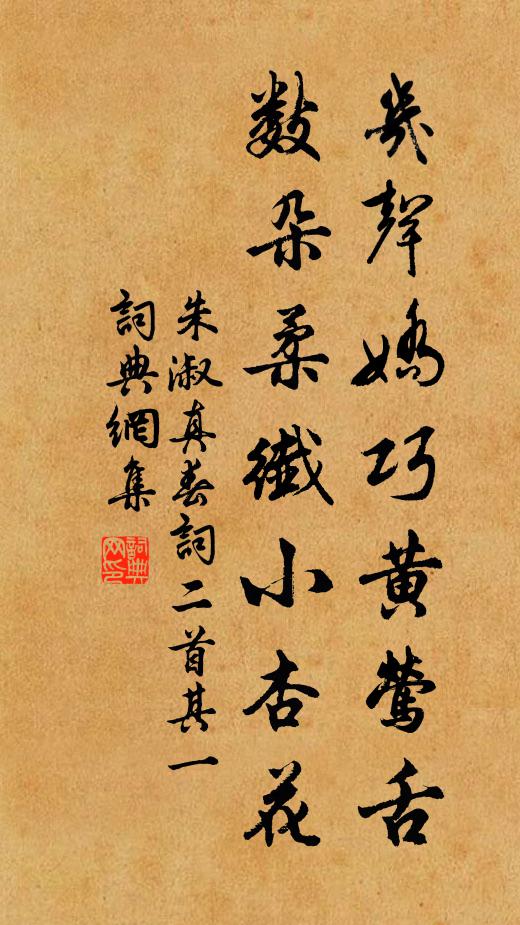 幾聲嬌巧黃鶯舌
數朵柔纖小杏花
朱淑真春詞二首其一
詞典網集
詞典網印